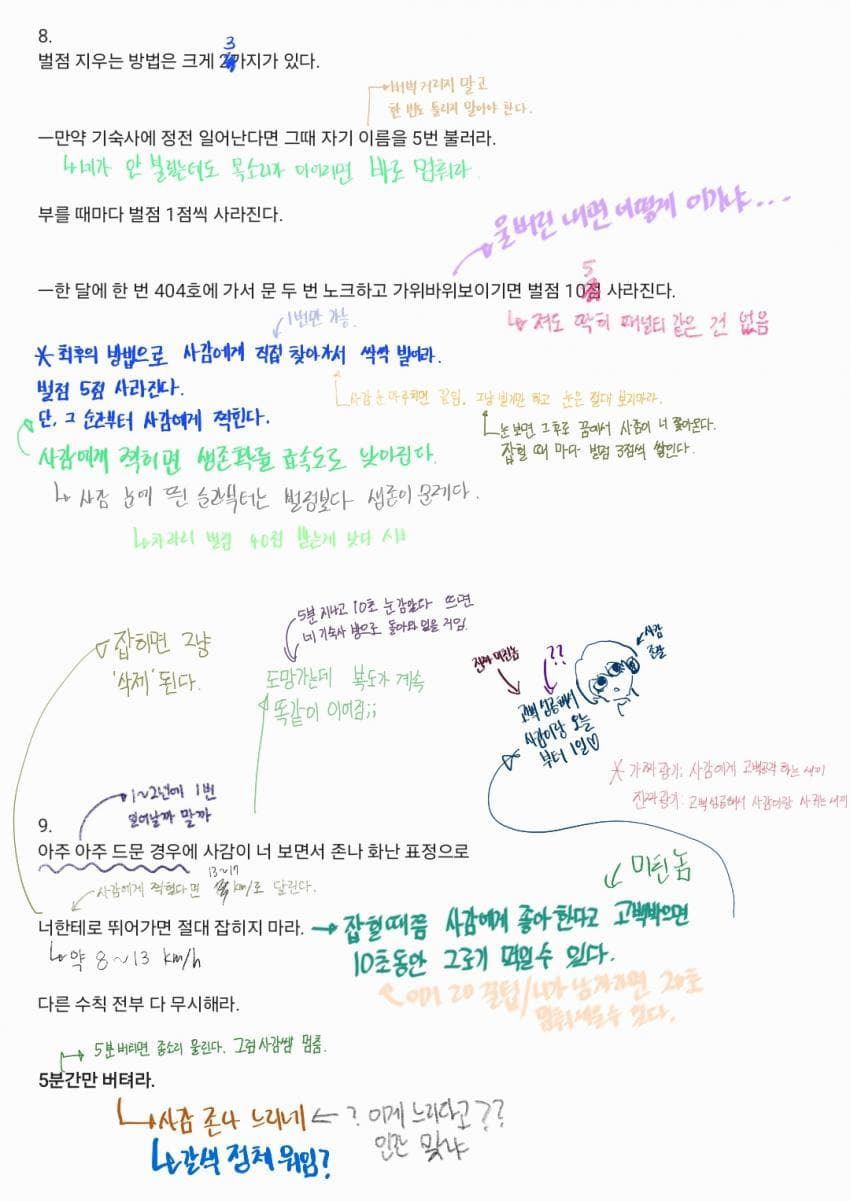 8.
벌점 지우는 방법은 크게 3가지가 있다.
거리지 말고
한 번도 틀리지 말아야 한다.
ㅡ만약 기숙사에 정전 일어난다면 그때 자기 이름을 5번 불러라.
↳네가 안 불렀는데도 목소리가 이어지면 바로 멈춰라.
부를 때마다 벌점 1점씩 사라진다.
울버린 내면 어떻게 이기냐...
ㅡ한 달에 한 번 404호에 가서 문 두 번 노크하고 가위바위보이기면 벌점 5점 사라진다.
↳져도 딱히 패널티 같은 건 없음
1번만 가능.
* 최후의 방법으로 사감에게 직접 찾아가서 싹싹 빌어라.
벌점 5점 사라진다.
↳사감 눈 마주치면 끝임. 그냥 빌기만 하고 눈은 절대 보지마라.
단, 그 순간부터 사감에게 찍힌다.
↳눈 보면 그 후로 꿈에서 사감이 너 쫓아온다.
잡힐 때 마다 벌점 3점씩 쌓인다.
사감에게 찍히면 생존확률 급속도로 낮아진다.
↳사감 눈에 띈 순간부터는 벌점보다 생존이 문제다.
↳차라리 벌점 40점 받는게 낫다 시바
5분 지나고 10초 눈감았다 뜨면
네 기숙사 방으로 돌아와 있을 거임.
잡히면 그냥
'삭제' 된다.
도망가는데 복도가 계속
똑같이 이어짐;;
진짜 미친놈
??
사감
존잘
고백 성공해서
사감이랑 오늘
부터 1일♡
* 가짜광기: 사감에게 고백공격 하는 새끼
진짜광기: 고백 성공해서 사감이랑 사귀는 새끼
1~2년에 1번
일어날까 말까
9.
아주 아주 드문 경우에 사감이 너 보면서 존나 화난 표정으로
사감에게 찍혔다면 13~17 km/로 달린다.
미친놈
너한테로 뛰어가면 절대 잡히지 마라.
→ 잡힐때쯤 사감에게 좋아한다고 고백박으면
10초동안 그로기 먹일수 있다.
↳약 8~13 km/h
여기 20 꿀팁/니가 남자라면 20초
멈춰세울수 있다.
다른 수칙 전부 다 무시해라.
5분버티면 종소리 울린다. 그럼 사감쌤 멈춤.
5분간만 버텨라.
↳사감 존나 느리네 ← ? 이게 느리다고??
인간 맞냐
↳갈색 정체 뭐임?